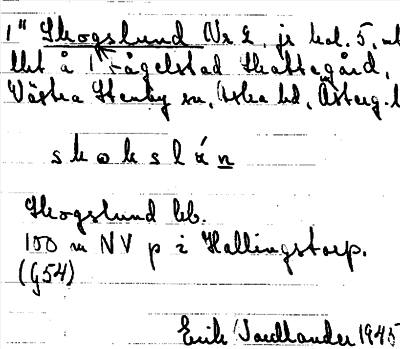 1" Skogslund Nr 2, js kol. 5, utb
lht å 1 Fågelstad Skattegård,
Västra Stenby sn, Aska hd, Österg. l
s k o k s l ú n
Skogslund lb.
100 m NV p i Hallingstorp.
(G54)
Erik Sandlander 1945